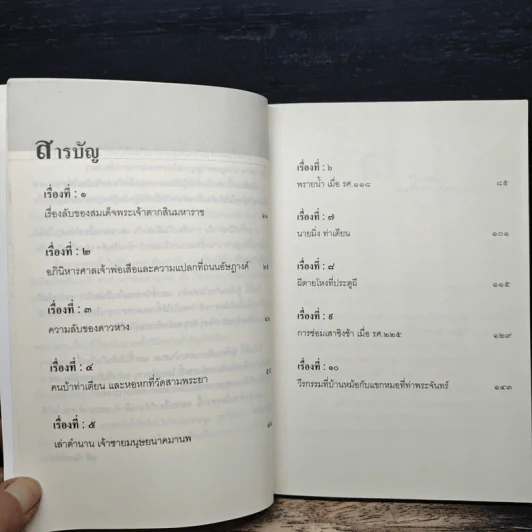 สารบัญ
เรื่องที่ : ๑
เรื่องลับของสมเด็จพระเจ้าตากสินมหาราช
เรื่องที่ : ๒
อภินิหารศาลเจ้าพ่อเสือและความแปลกที่ถนนอัษฎางค์
เรื่องที่ : ๓
ความลับของดาวหาง
เรื่องที่ : ๔
คนบ้าท่าเตียน และหอหกที่วัดสามพระยา
เรื่องที่ : ๕
เล่าตำนาน เจ้าชายมนุษยนาคมานพ
เรื่องที่ : ๖
พรายน้ำ เมื่อ รศ.๑๑๘ ๘๕
เรื่องที่ : ๗
นายมิ่ง ท่าเตียน ๑๐๑
เรื่องที่ : ๘
ผีตายโหงที่ประตูผี ๑๑๕
เรื่องที่ : ๙
การซ่อมเสาชิงช้า เมื่อ รศ.๒๒๕ ๑๒๙
เรื่องที่ : ๑๐
วีรกรรมที่บ้านหม้อกับแขกหมอที่ท่าพระจันทร์ ๑๔๓